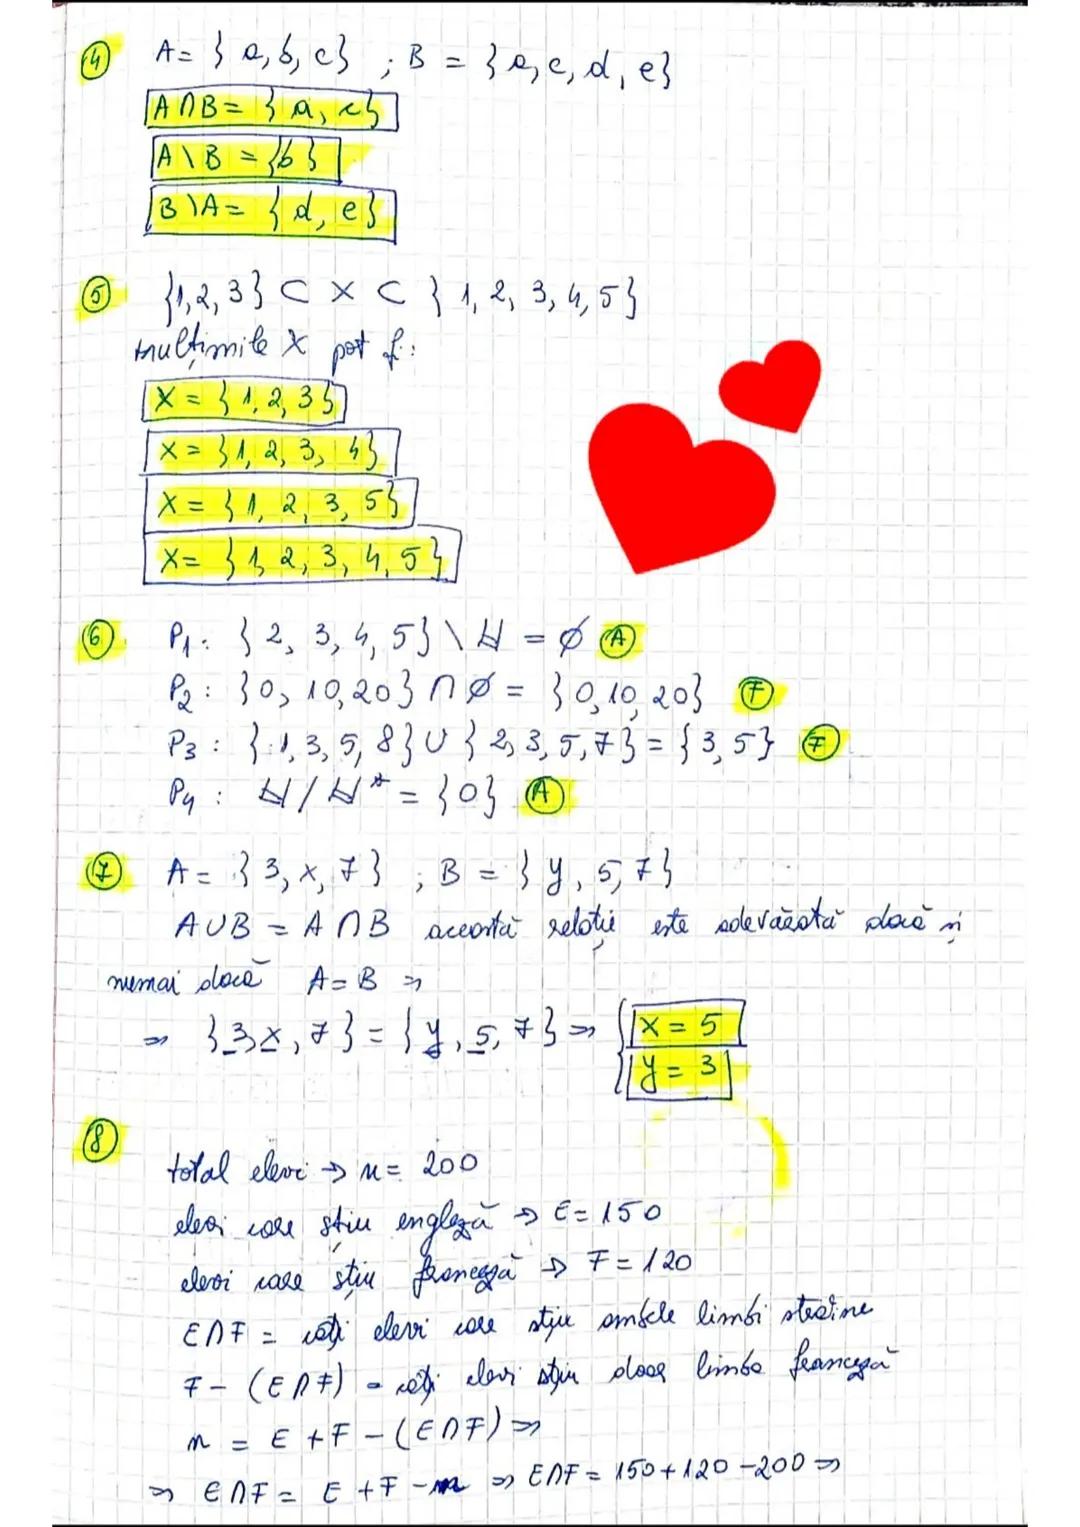 4 A = {a, b, c} ; B = {a, c, d, e}
A∩B = {a, c}
A\B = {b}
B\A = {d, e}
5 {1, 2, 3} ⊂ X ⊂ {1, 2, 3, 4, 5}
mulțimile X pot fi:
X = {1, 2, 3}
X = {1, 2, 3, 4}
X = {1, 2, 3, 5}
X = {1, 2, 3, 4, 5}
6 P1: {2, 3, 4, 5} \ ℕ = ∅ A
P2: {0, 10, 20} ∩ ∅ = {0, 10, 20} F
P3: {1, 3, 5, 8} ∪ {2, 3, 5, 7} = {3, 5} F
P4: ℕ / ℕ* = {0} A
7 A = {3, x, 7} ; B = {y, 5, 7}
A∪B = A∩B această relație este adevărată dacă și
numai dacă A = B ⇒
⇒ {3, x, 7} = {y, 5, 7} ⇒ { x = 5
y = 3
8
total elevi → n = 200
elevi care știu engleză ⇒ E = 150
elevi care știu franceză ⇒ F = 120
E∩F = câți elevi care știu ambele limbi străine
F - (E∩F) = câți elevi știu doar limba franceză
n = E + F - (E∩F) ⇒
⇒ E∩F = E + F - n ⇒ E∩F = 150 + 120 - 200 ⇒